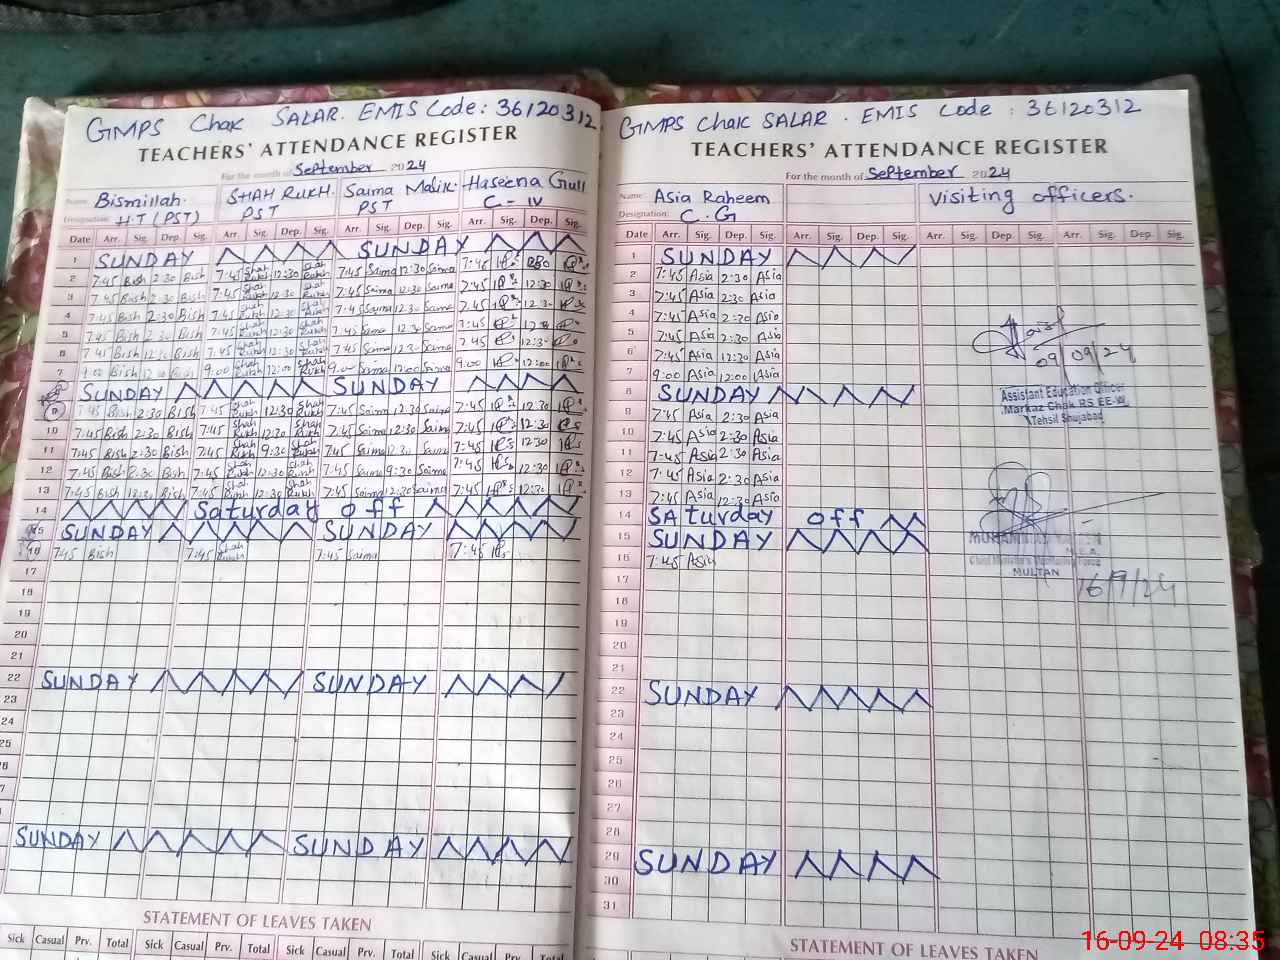 GMPS Chak SALAR. EMIS Code: 36120312.
TEACHERS' ATTENDANCE REGISTER
For the month of September 2024
Name: Bismillah. SHAH RUKH. Saima Malik. Haseena Gull
Designation: H.T (PST) PST PST C-IV
Date Arr. Sig. Dep. Sig. Arr. Sig. Dep. Sig. Arr. Sig. Dep. Sig. Arr. Sig. Dep. Sig.
1 SUNDAY SUNDAY
2 7:45 Bish 2:30 Bish 7:45 Shah Rukh 12:30 Shah Rukh 7:45 Saima 12:30 Saima 7:45
3 7:45 Bish 2:30 Bish 7:45 Shah Rukh 12:30 Shah Rukh 7:45 Saima 12:30 Saima 7:45 12:30
4 7:45 Bish 2:30 Bish 7:45 Shah Rukh 12:30 Shah Rukh 7:45 Saima 12:30 Saima 7:45 12:30
5 7:45 Bish 2:30 Bish 7:45 Shah Rukh 12:30 Shah Rukh 7:45 Saima 12:30 Saima 7:45 12:30
6 7:45 Bish 12:30 Bish 7:45 Shah Rukh 12:30 Shah Rukh 7:45 Saima 12:30 Saima 7:45 12:30
7 9:00 Bish 12:00 Bish 9:00 Shah Rukh 12:00 Shah Rukh 9:00 Saima 12:00 Saima 9:00 12:00
SUNDAY SUNDAY
7:45 Bish 2:30 Bish 7:45 Shah Rukh 12:30 Shah Rukh 7:45 Saima 12:30 Saima 7:45 12:30
10 7:45 Bish 2:30 Bish 7:45 Shah Rukh 12:30 Shah Rukh 7:45 Saima 12:30 Saima 7:45 12:30
11 7:45 Bish 2:30 Bish 7:45 Shah Rukh 9:30 Shah Rukh 7:45 Saima 12:30 Saima 7:45 12:30
12 7:45 Bish 2:30 Bish 7:45 Shah Rukh 12:30 Shah Rukh 7:45 Saima 9:30 Saima 7:45 12:30
13 7:45 Bish 12:30 Bish 7:45 Shah Rukh 12:30 Shah Rukh 7:45 Saima 12:30 Saima 7:45 12:30
14 Saturday off
15 SUNDAY SUNDAY
16 7:45 Bish 7:45 Shah Rukh 7:45 Saima 7:45
17
18
19
20
21
22 SUNDAY SUNDAY
23
24
25
SUNDAY SUNDAY
STATEMENT OF LEAVES TAKEN
Sick Casual Prv. Total Sick Casual Prv. Total Sick Casual Prv. Total Sick Casual Prv. Total
GMPS Chak SALAR. EMIS Code: 36120312
TEACHERS' ATTENDANCE REGISTER
For the month of September 2024
Name: Asia Raheem Visiting officers.
Designation: C.G
Date Arr. Sig. Dep. Sig. Arr. Sig. Dep. Sig. Arr. Sig. Dep. Sig. Arr. Sig. Dep. Sig.
1 SUNDAY
2 7:45 Asia 2:30 Asia
3 7:45 Asia 2:30 Asia
4 7:45 Asia 2:30 Asia
5 7:45 Asia 2:30 Asia
6 7:45 Asia 12:30 Asia
7 9:00 Asia 12:00 Asia
8 SUNDAY
9 7:45 Asia 2:30 Asia
10 7:45 Asia 2:30 Asia
11 7:45 Asia 2:30 Asia
12 7:45 Asia 2:30 Asia
13 7:45 Asia 12:30 Asia
14 SAturday off
15 SUNDAY
16 7:45 Asia
17
18
19
20
21
22 SUNDAY
23
24
25
26
27
28
29 SUNDAY
30
31
09/09/24
Assistant Education Officer
Markaz Chak RS EE-W
Tehsil Shujabad
M.E.A.
Chief Minister's Monitoring Force
MULTAN
16/9/24
STATEMENT OF LEAVES TAKEN
16-09-24 08:35